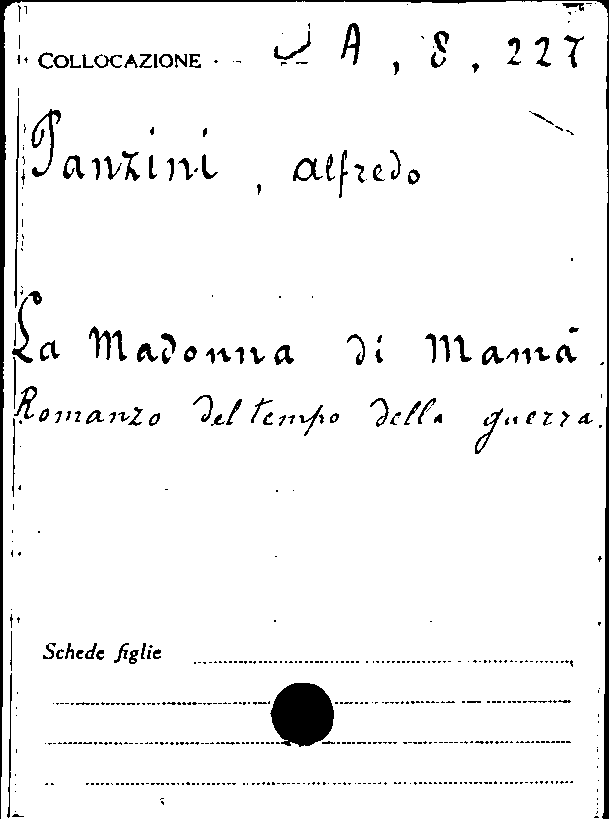 COLLOCAZIONE A, 8, 227
Panzini, Alfredo
La Madonna di Mamà
Romanzo del tempo della guerra.
Schede figlie